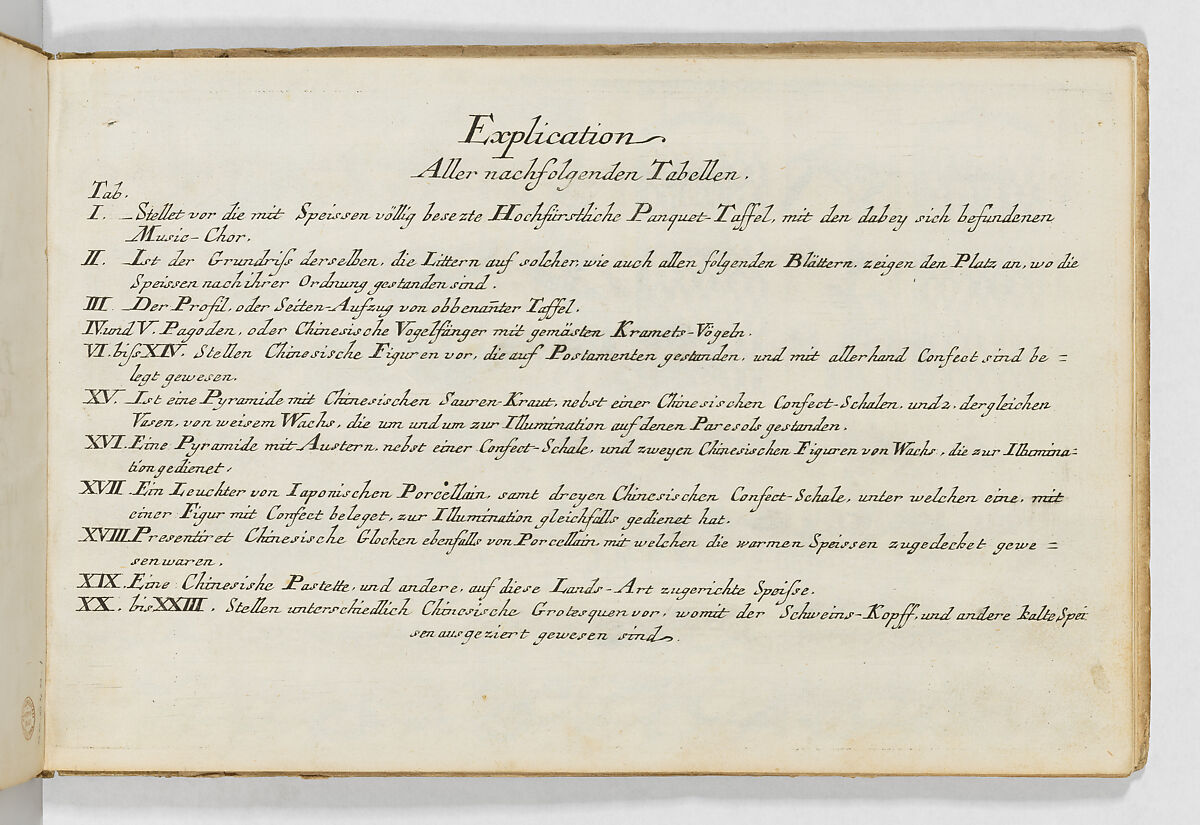 Explication.
Aller nachfolgenden Tabellen.
Tab.
I. Stellet vor die mit Speissen völlig besezte Hochfürstliche Panquet-Taffel, mit den dabey sich befundenen
Music-Chor.
II. Ist der Grundriss derselben, die Littern auf solcher, wie auch allen folgenden Blättern, zeigen den Platz an, wo die
Speissen nach ihrer Ordnung gestanden sind.
III. Der Profil, oder Seiten-Aufzug von obbenan̄ter Taffel.
IV. und V. Pagoden, oder Chinesische Vogelfänger mit gemästen Kramets-Vögeln.
VI. biss XIV. Stellen Chinesische Figuren vor, die auf Postamenten gestanden, und mit allerhand Confect sind be=
legt gewesen.
XV. Ist eine Pyramide mit Chinesischen Sauren-Kraut, nebst einer Chinesischen Confect-Schalen, und 2. dergleichen
Vasen, von weisem Wachs, die um und um zur Illumination auf denen Paresols gestanden.
XVI. Eine Pyramide mit Austern, nebst einer Confect-Schale, und zweyen Chinesischen Figuren von Wachs, die zur Illumina=
tion gedienet.
XVII. Ein Leuchter von Iaponischen Porcellain, samt dreyen Chinesischen Confect-Schale, unter welchen eine, mit
einer Figur mit Confect beleget, zur Illumination gleichfalls gedienet hat.
XVIII. Presentiret Chinesische Glocken ebenfalls von Porcellain, mit welchen die warmen Speissen zugedecket gewe=
sen waren.
XIX. Eine Chinesishe Pastette, und andere, auf diese Lands-Art zugerichte Speisse.
XX. bis XXIII. Stellen unterschiedlich Chinesische Grotesquen vor, womit der Schweins-Kopff, und andere kalte Spei
sen ausgeziert gewesen sind.